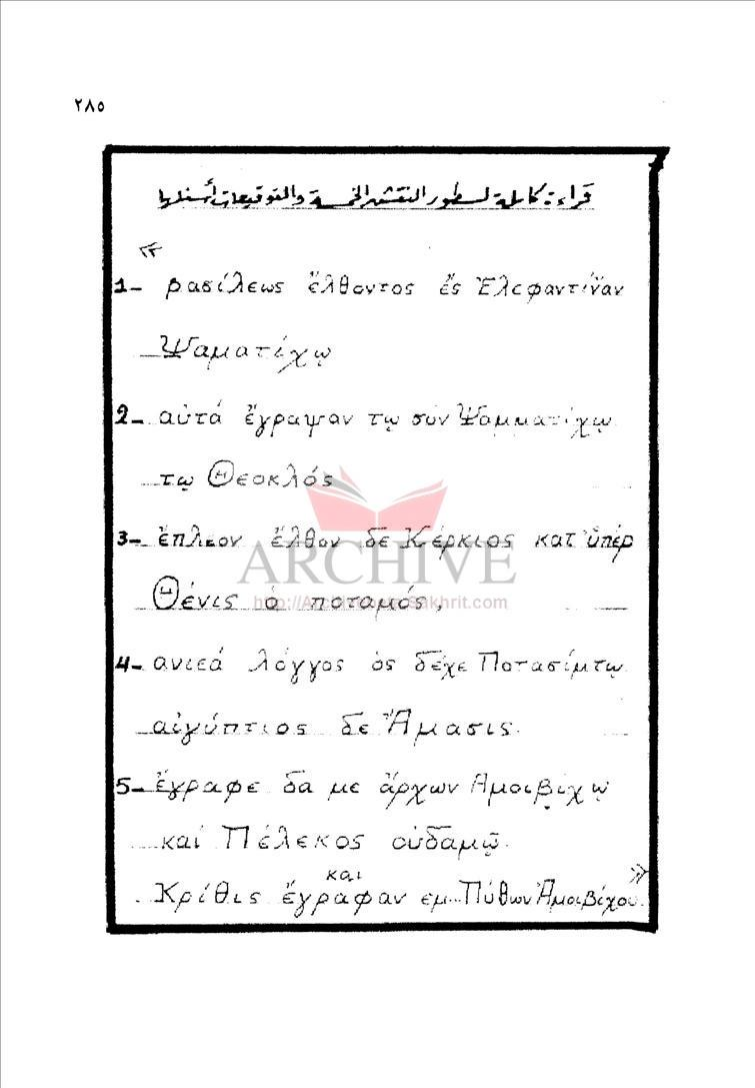 ٢٨٥
قراءة كاملة لسطور النقش الخمسة والتوقيعات أسفلها
«
1- βασίλεως ἔλθοντος ἐς Ἐλεφαντίναν
Ψαματίχῳ
2- αὐτά ἔγραψαν τῳ σύν Ψαμματίχῳ
τῳ Θεοκλός
3- ἔπλεον ἔλθον δε Κέρκιος κατ ὑπέρ
Θένις ὁ ποταμός,
4- ανιεά λόγγος ὁς δέχε Ποτασίμτῳ
αἰγύπτιος δε Ἄμασις.
5- ἔγραφε δα με ἄρχων Αμοιβίχῳ
καί Πέλεκος οὐδαμῷ.
και
Κρίθις ἔγραφαν εμ... Πύθων Ἀμοιβίχου. »
ARCHIVE
http://Archivebeta.Sakhrit.com